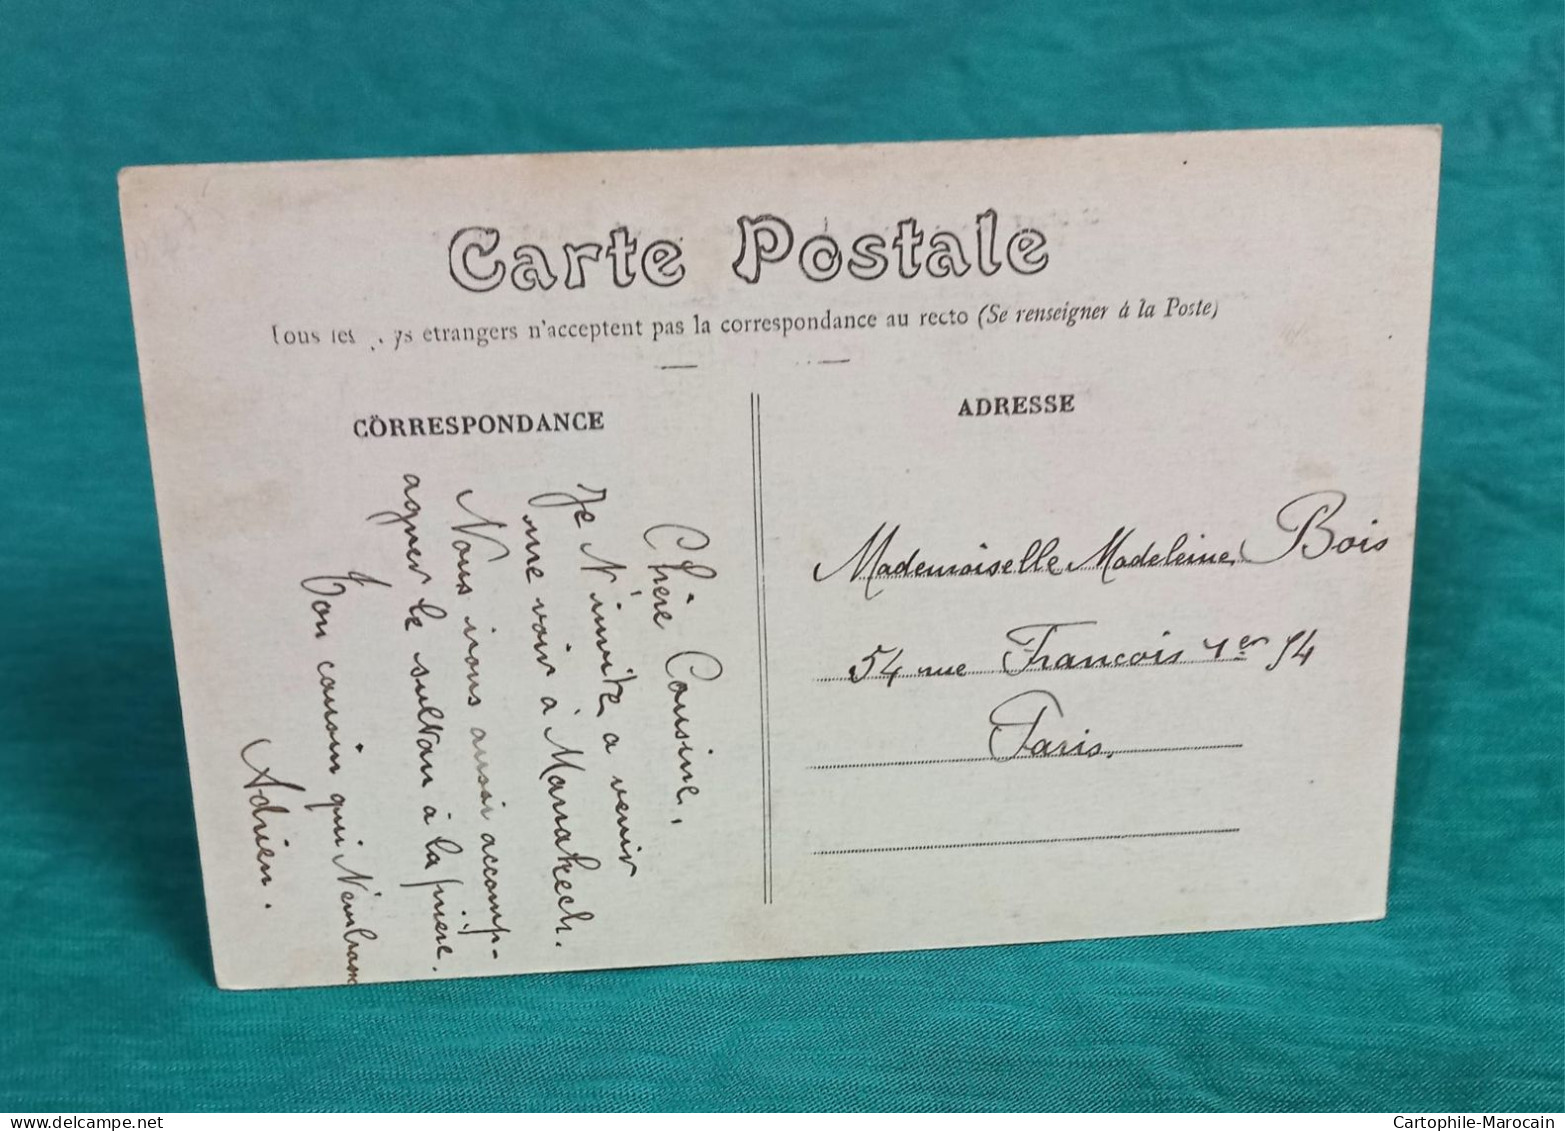 Carte Postale
Tous les ys etrangers n'acceptent pas la correspondance au recto (Se renseigner à la Poste)
CORRESPONDANCE
Chère Cousine,
Je t'invite a venir
me voir à Marrakech.
Vous irons aussi accomp-
agner le sultan à la prière.
Ton cousin qui t'embrasse
Adrien.
ADRESSE
Mademoiselle Madeleine Bois
54 rue Francois 1er 54
Paris.
delcampe.net
Cartophile-Marocain